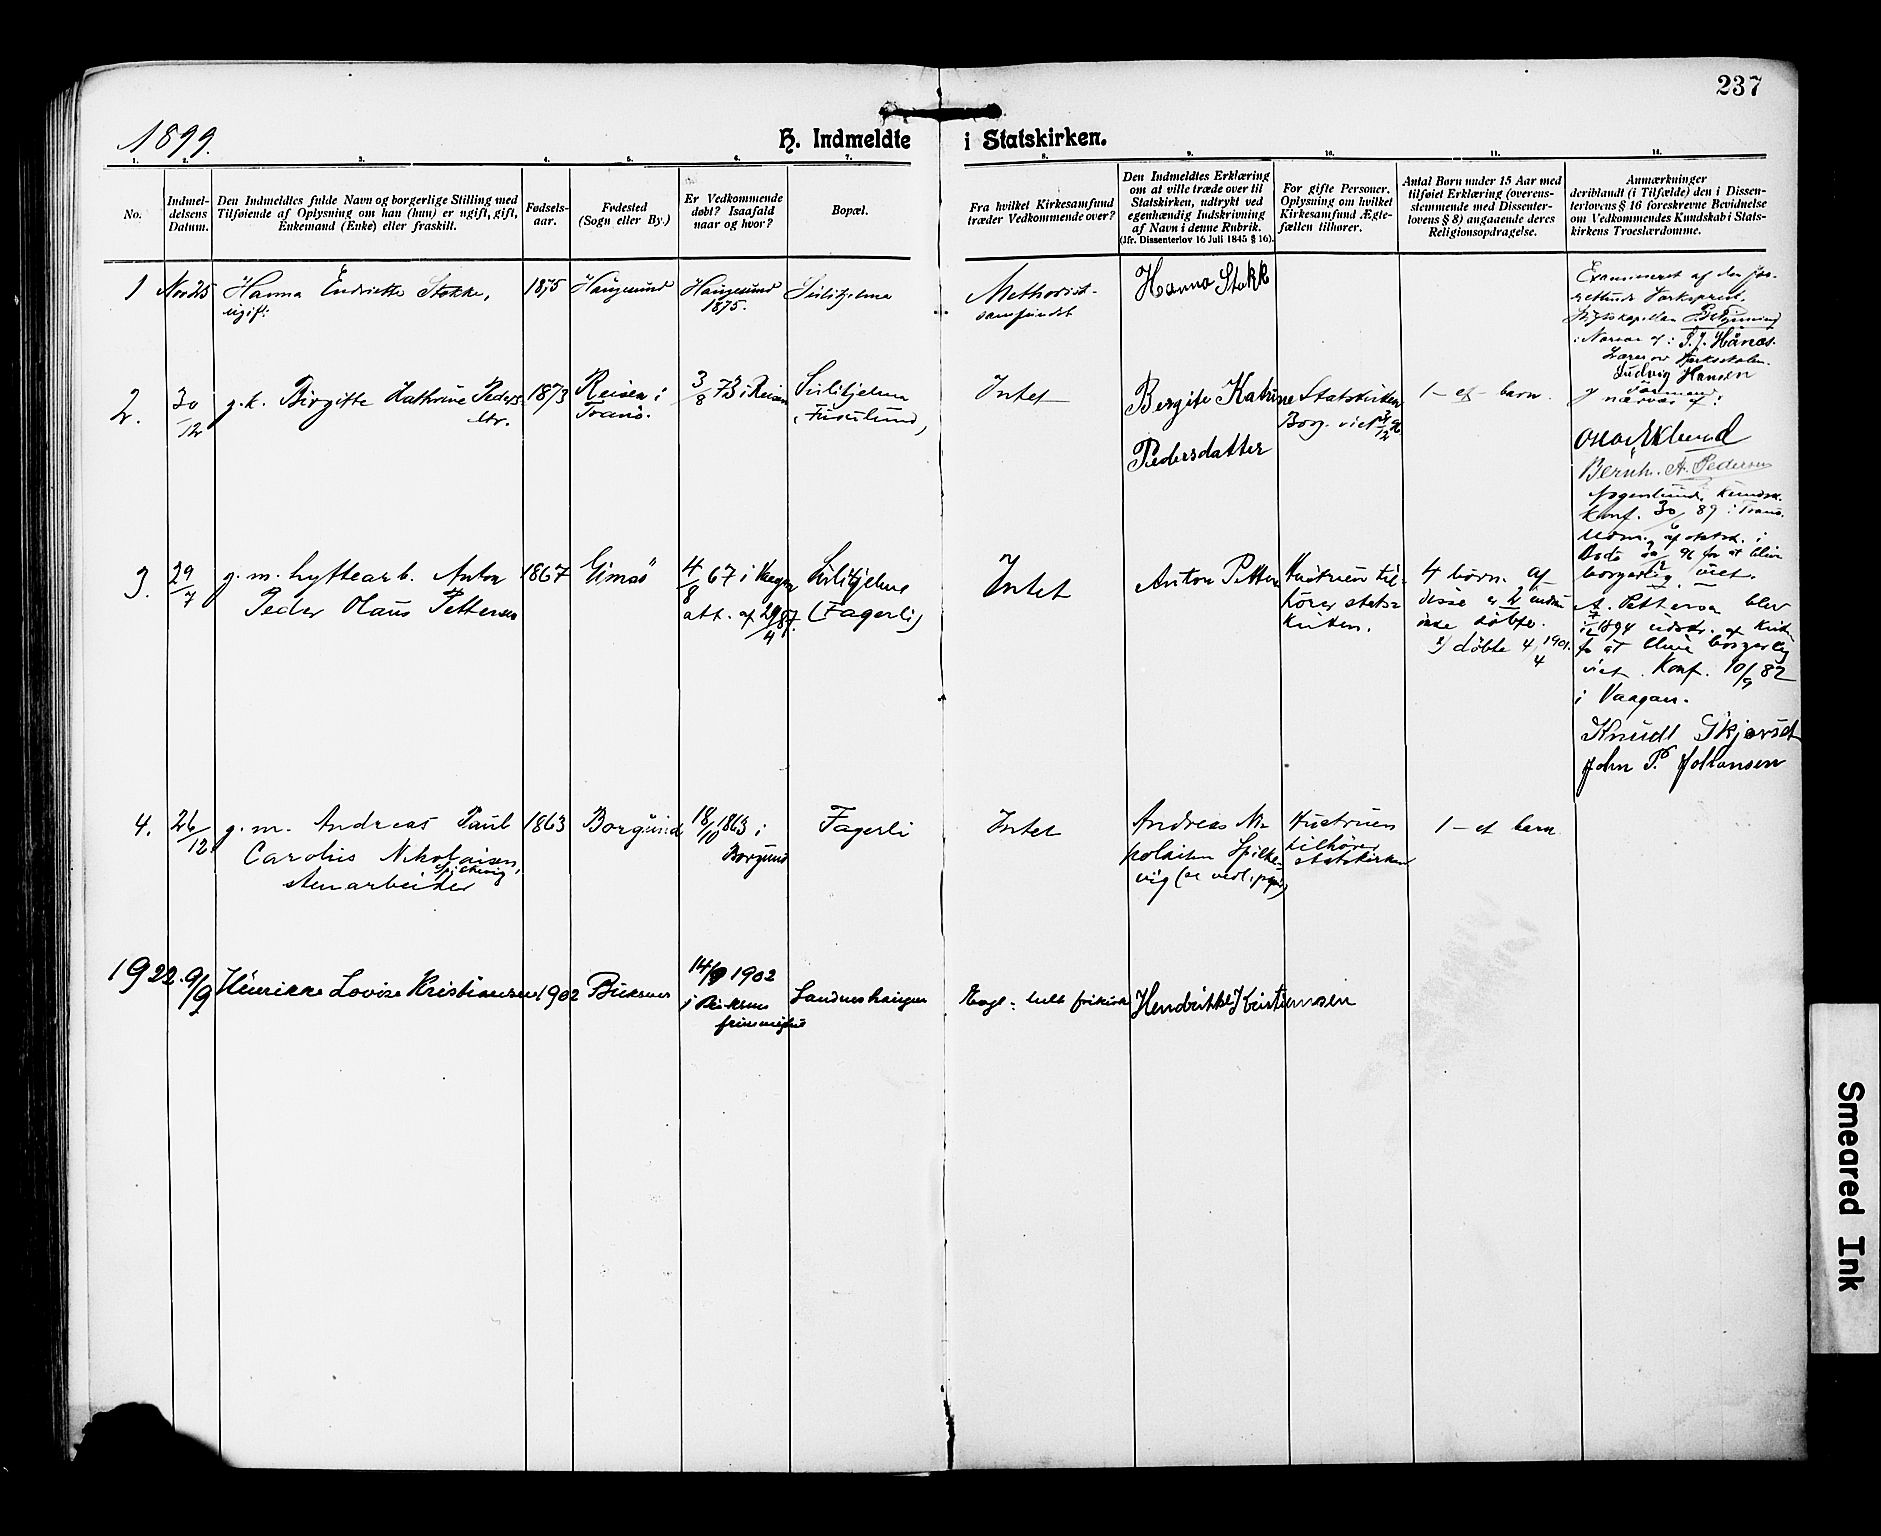 237
1899.
H. Indmeldte i Statskirken.
1. 2. 3. 4. 5. 6. 7. 8. 9. 10. 11. 14.
No.
Indmel-
delsens
Datum.
Den Indmeldtes fulde Navn og borgerlige Stilling med
Tilføiende af Oplysning om han (hun) er ugift, gift,
Enkemand (Enke) eller fraskilt.
Fødsels-
aar.
Fødested
(Sogn eller By.)
Er Vedkommende
døbt? Isaafald
naar og hvor?
Bopæl.
Fra hvilket Kirkesamfund
træder Vedkommende over?
Den Indmeldtes Erklæring
om at ville træde over til
Statskirken, udtrykt ved
egenhændig Indskrivning
af Navn i denne Rubrik.
(Jfr. Dissenterlov 16 Juli 1845 § 16).
For gifte Personer.
Oplysning om hvilket
Kirkesamfund Ægte-
fællen tilhører.
Antal Børn under 15 Aar med
tilføiet Erklæring (overens-
stemmende med Dissenter-
lovens § 8) angaaende deres
Religionsopdragelse.
Anmærkninger
deriblandt (i Tilfælde) den i Dissen-
terlovens § 16 foreskrevne Bevidnelse
om Vedkommendes Kundskab i Stats-
kirkens Troeslærdomme.
1
Hanna Endrikke Stokke,
ugift
1875
Haugesund
Haugesund
1875.
Sulitjelma
Methodist-
samfundet
Hanna Stokk
Examineret af den
J. J. Hånæs.
Ludvig Hansen
2.
30/12
g.k. Birgitte Kathrine Peders-
dtr.
1873
Reisen i
Tromsö.
3/8 73 i Reisen
Sulitjelma
(Furulund)
Intet
Bergite Katrine
Pedersdatter
Statskirken
Borg. viet
1 - et - barn.
nærvær af:
Bernh. A. Pedersen
konf. 30/6 89 i Troms.
borgerlig viet.
3.
29/7
g. m. hyttearb. Anton
Peder Olaus Pettersen
1867
Gimsö
4/8 67 i Vaagan
att. af 29/4 87.
Sulitjelma
(Fagerli)
Intet
Anton Petter
Hustruen til-
hører stats-
kirken.
4 børn. Af
disse er 2 endnu
ikke døbte.
2) døbte 4/4 1901.
A. Pettersen blev
7/12 1894 udtr. af Kirken
for at blive borgerlig
viet. Konf. 10/9 82
i Vaagan.
Knudt Skjerset
John P. Johansen
4.
26/12
g. m. Andreas Paul
Carolus Nikolaisen,
Spilkevig
stenarbeider
1863
Borgund
18/10 1863 i
Borgund
Fagerli
Intet
Andreas Ni-
kolaisen Spilke-
vig
Hustruen
tilhører
statskirken
1 - et barn
1922.
9/9
Henrikke Lovise Kristiansen
1902
Buksnes
14/9 1902
i Buksnes
frimenighed
Sandneshaugen
Evgl. luth frikirke
Hendrikke Kristiansen
Smeared Ink